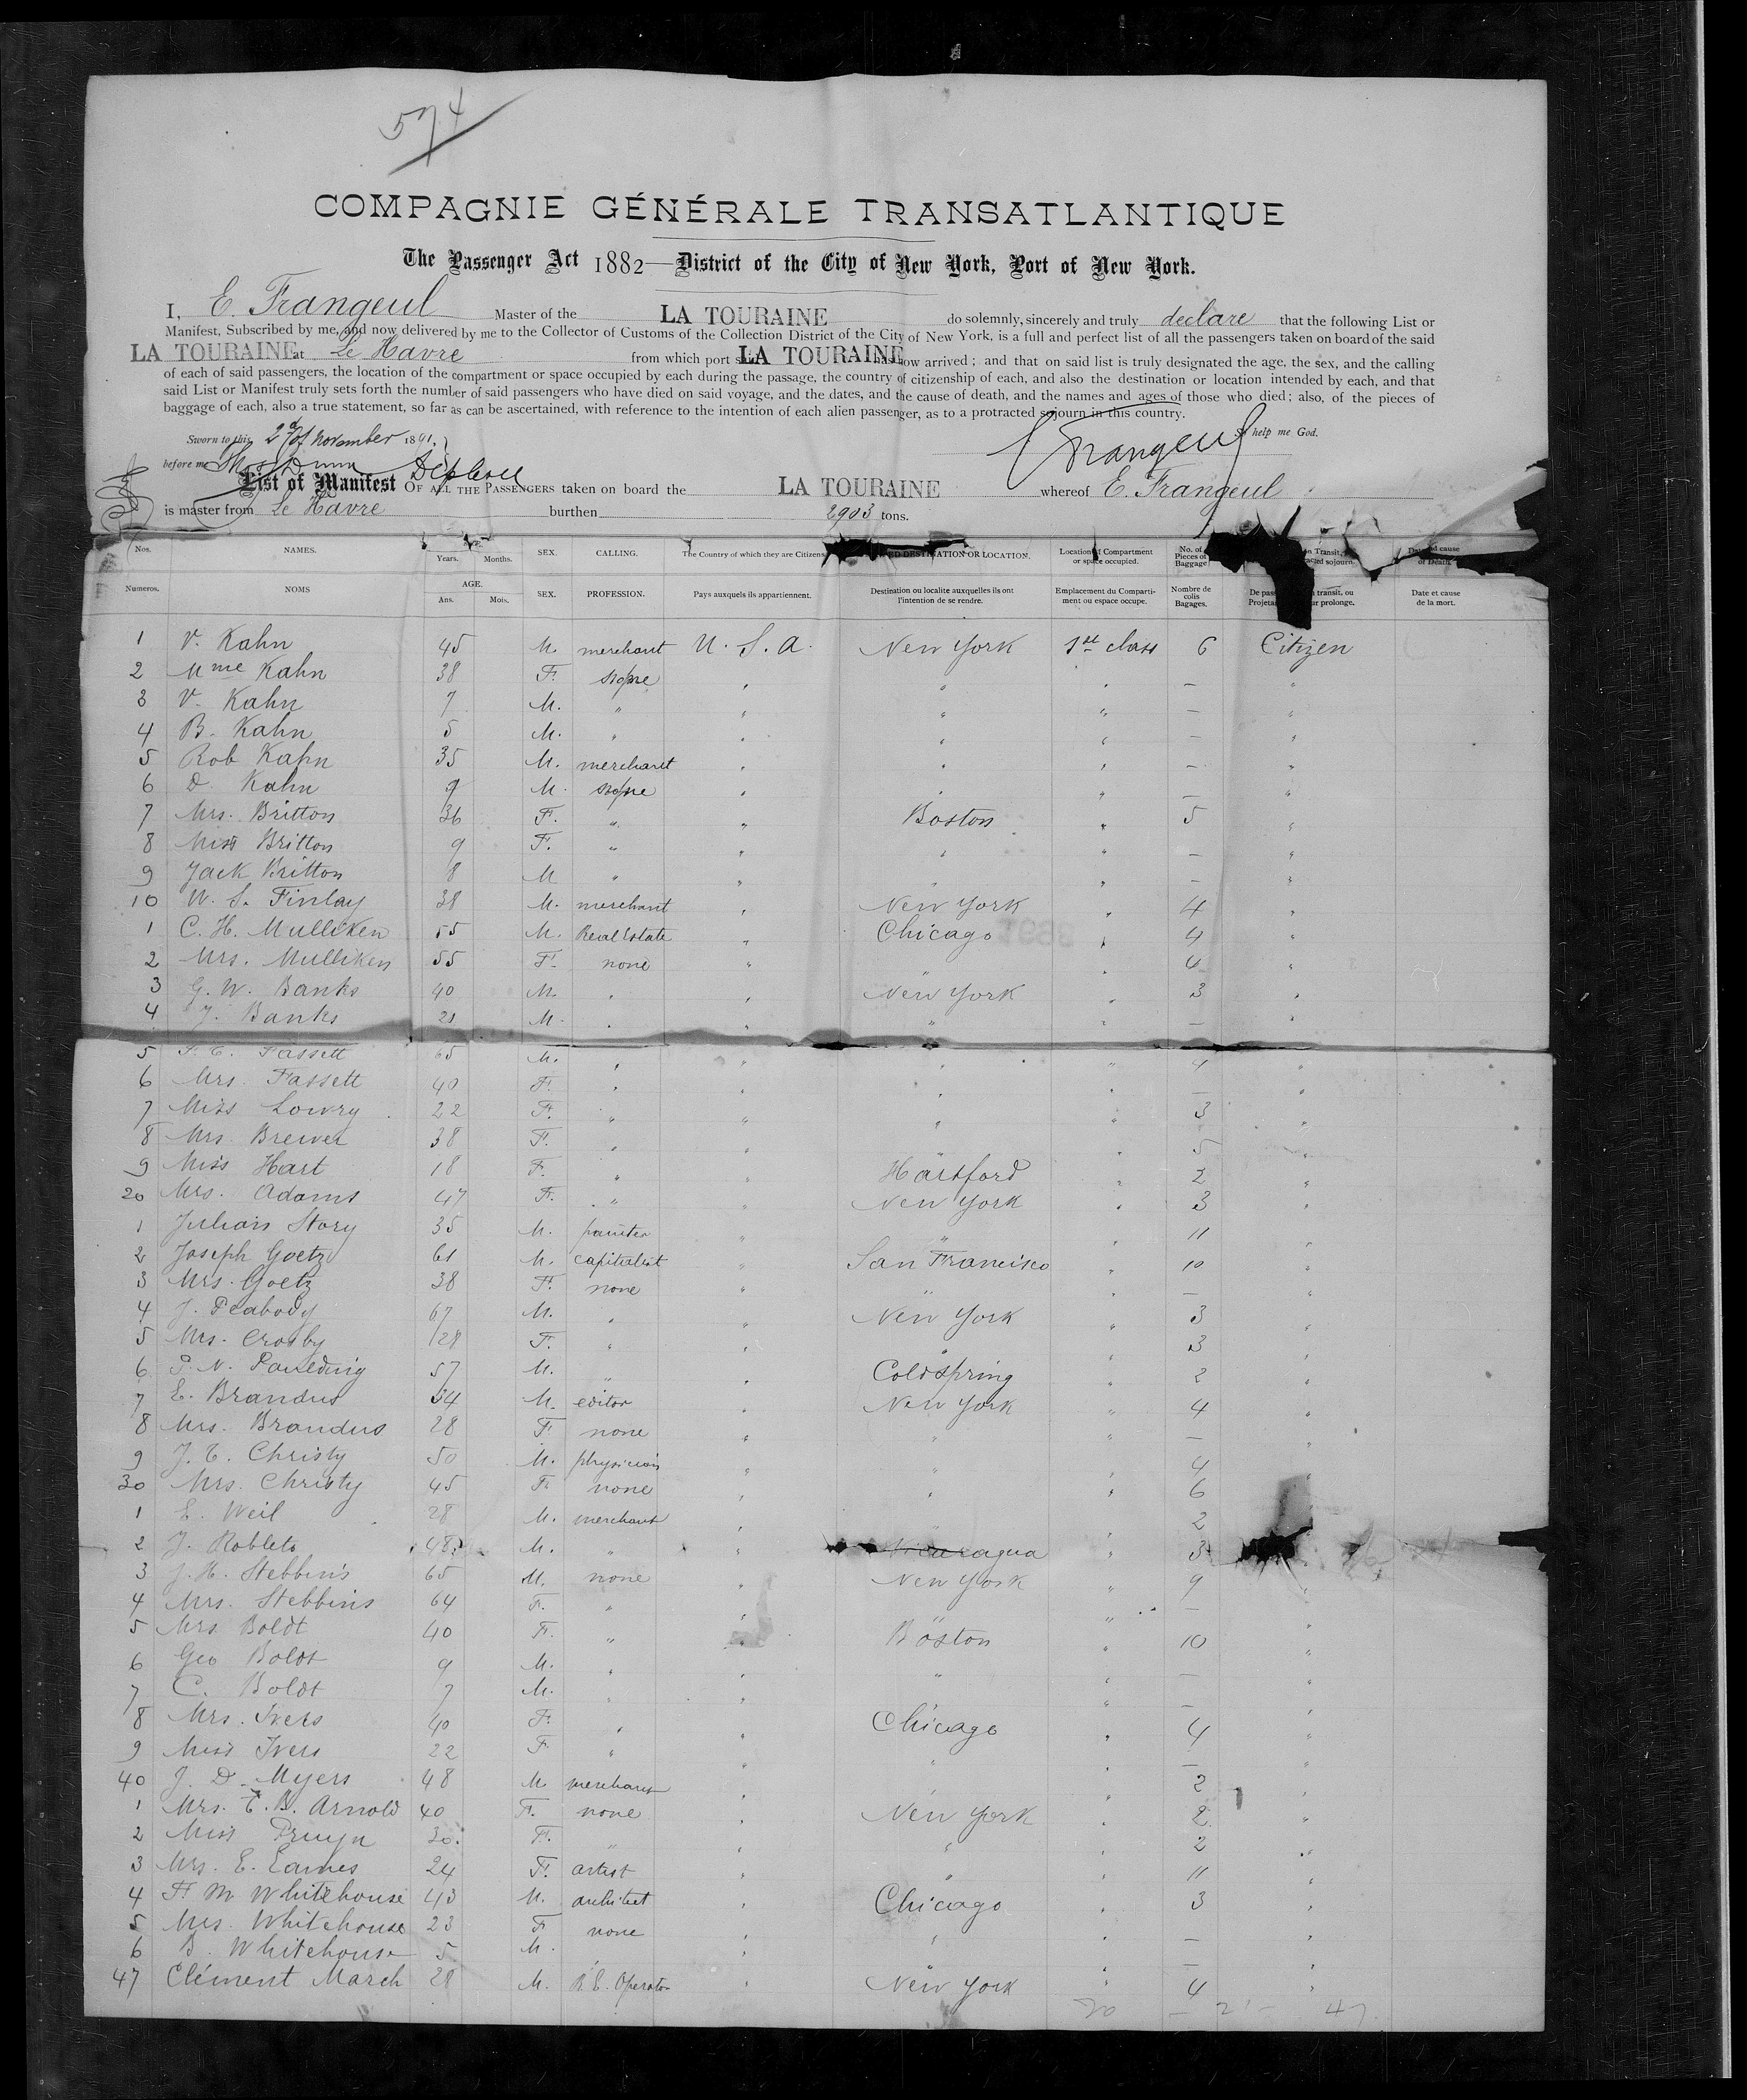 574
COMPAGNIE GÉNÉRALE TRANSATLANTIQUE
The Passenger Act 1882—District of the City of New York, Port of New York.
I, E. Frangeul Master of the LA TOURAINE do solemnly, sincerely and truly declare that the following List or
Manifest, Subscribed by me, and now delivered by me to the Collector of Customs of the Collection District of the City of New York, is a full and perfect list of all the passengers taken on board of the said
LA TOURAINE at Le Havre from which port said LA TOURAINE has now arrived; and that on said list is truly designated the age, the sex, and the calling
of each of said passengers, the location of the compartment or space occupied by each during the passage, the country of citizenship of each, and also the destination or location intended by each, and that
said List or Manifest truly sets forth the number of said passengers who have died on said voyage, and the dates, and the cause of death, and the names and ages of those who died; also, of the pieces of
baggage of each, also a true statement, so far as can be ascertained, with reference to the intention of each alien passenger, as to a protracted sojourn in this country.
Sworn to this 2d of November 1891, So help me God.
before me Frangeul
List of Manifest OF ALL THE PASSENGERS taken on board the LA TOURAINE whereof E. Frangeul
is master from Le Havre burthen 2903 tons.
Nos. NAMES. Years. Months. SEX. CALLING. The Country of which they are Citizens DESTINATION OR LOCATION. Location of Compartment or space occupied. No. of Pieces of Baggage in Transit, sojourn. Date and cause of Death.
Numeros. NOMS AGE. Ans. Mois. SEX. PROFESSION. Pays auxquels ils appartiennent. Destination ou localite auxquelles ils ont l'intention de se rendre. Emplacement du Comparti-ment ou espace occupe. Nombre de colis Bagages. transit, ou prolonge. Date et cause de la mort.
1 V. Kahn 45 M. merchant U. S. A. New York 1st class 6 Citizen
2 Mme Kahn 38 F. " " " " — "
3 V. Kahn 7 M. " " " " — "
4 B. Kahn 5 M. " " " " — "
5 Rob Kahn 35 M. merchant " " " — "
6 D. Kahn 9 M. " " " — "
7 Mrs. Britton 36 F. " " Boston " 5 "
8 Miss Britton 9 F. " " " " — "
9 Jack Britton 8 M " " " " — "
10 W. S. Finlay 38 M. merchant " New York " 4 "
1 C. H. Mulliken 55 M. Real Estate " Chicago " 4 "
2 Mrs. Mulliken 55 F. none " " " 4 "
3 G. W. Banks 40 M. " " New York " 3 "
4 J. Banks 21 M. " " " " — "
5 Fassett 65 M. " " " " 4 "
6 Mrs. Fassett 40 F. " " " " — "
7 Miss Lowry 22 F. " " " " 3 "
8 Mrs. Brewer 38 F. " " " " 5 "
9 Miss Hart 18 F. " " Hartford " 2 "
20 Mrs. Adams 47 F. " " New York " 3 "
1 Julian Story 35 M. painter " " " 11 "
2 Joseph Goetz 61 M. capitalist " San Francisco " 10 "
3 Mrs. Goetz 38 F. none " " " — "
4 J. Peabody 67 M. " " New York " 3 "
5 Mrs. Crosby 28 F. " " " " 3 "
6 P. N. Paulding 57 M. " " Coldspring " 2 "
7 E. Brandus 34 M. editor " New York " 4 "
8 Mrs. Brandus 28 F. none " " " — "
9 J. E. Christy 50 M. physician " " " 4 "
30 Mrs. Christy 45 F. none " " " 6 "
1 E. Weil 28 M. merchant " " " 2
2 J. Robleto 48 M. " " Nicaragua " 3
3 J. H. Stebbins 65 M. none " New York " 9 "
4 Mrs. Stebbins 64 F. " " " " — "
5 Mrs Boldt 40 F. " " Boston " 10 "
6 Geo Boldt 9 M. " " " " — "
7 C. Boldt 7 M. " " " " — "
8 Mrs. Ivers 40 F. " " Chicago " 4 "
9 Miss Ivers 22 F. " " " " — "
40 J. D. Myers 48 M. merchant " " " 2
1 Mrs. E. B. Arnold 40 F. none " New York " 2 "
2 Miss Pruyn 30. F. " " " " 2 "
3 Mrs. E. Eames 24 F. artist " " " 11 "
4 F. M Whitehouse 43 M. architect " Chicago " 3 "
5 Mrs. Whitehouse 23 F none " " " — "
6 B. Whitehouse 5 M. " " " — "
47 Clément March 28 M. R. E. Operator " New York " 4 "
20 — 2 — 47